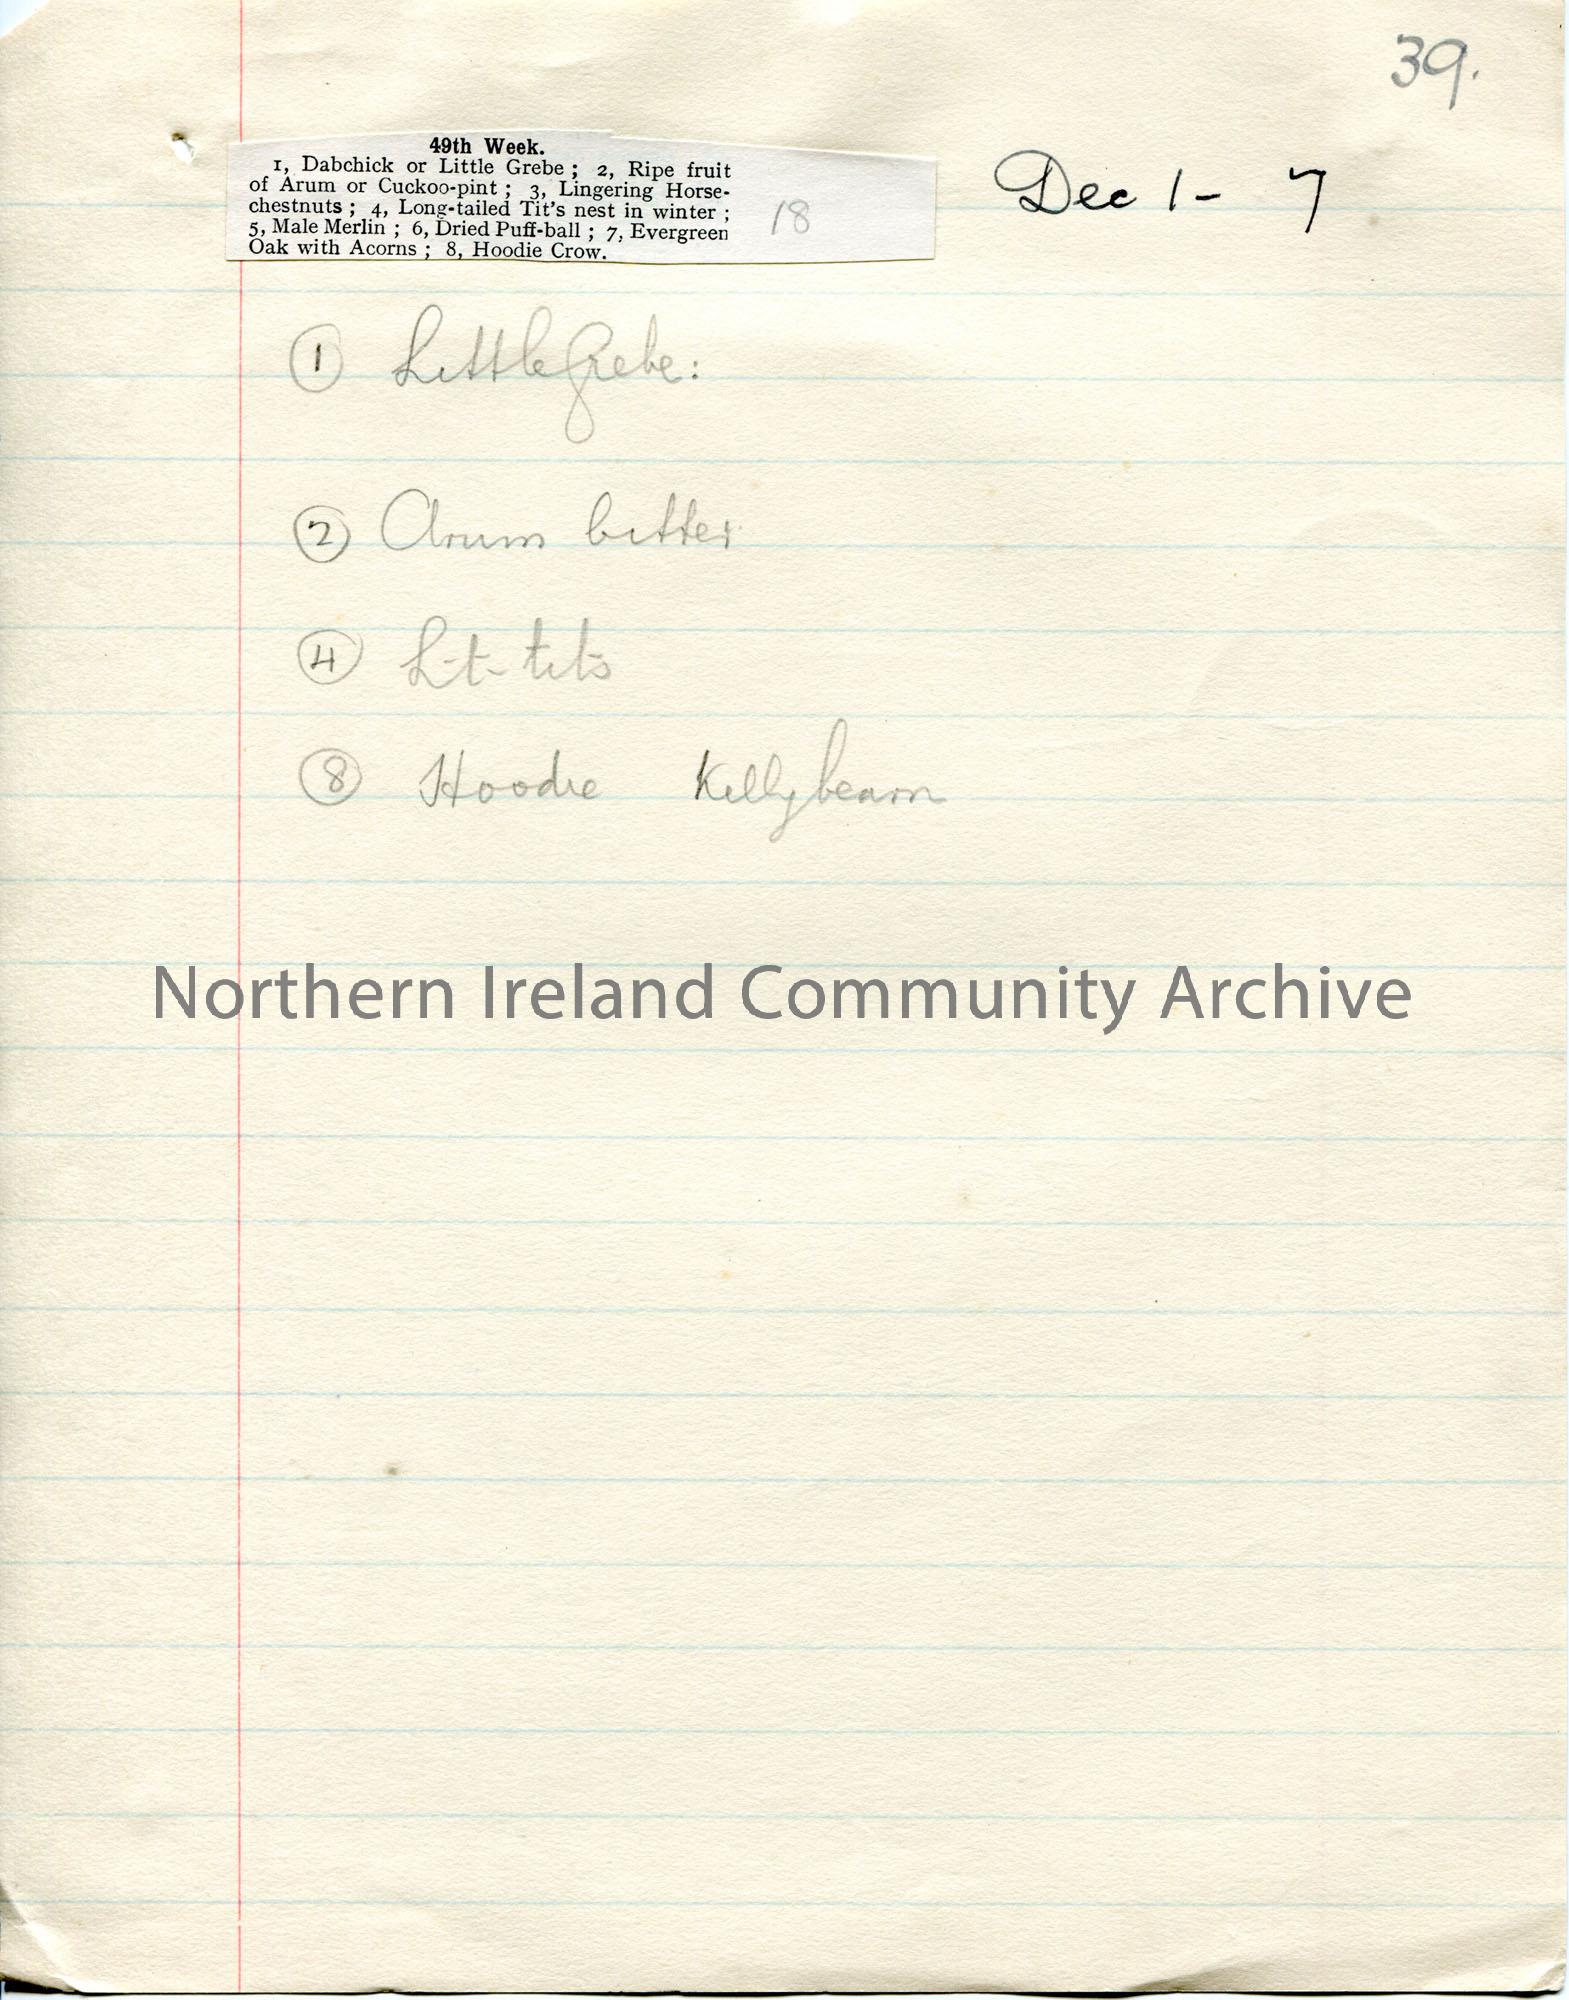 39.
49th Week.
1, Dabchick or Little Grebe; 2, Ripe fruit
of Arum or Cuckoo-pint; 3, Lingering Horse-
chestnuts; 4, Long-tailed Tit's nest in winter;
5, Male Merlin; 6, Dried Puff-ball; 7, Evergreen
Oak with Acorns; 8, Hoodie Crow.
18
Dec 1 - 7
1 Little Grebe:
2 Arum bitter
4 L-t- tits
8 Hoodie Killybearn
Northern Ireland Community Archive